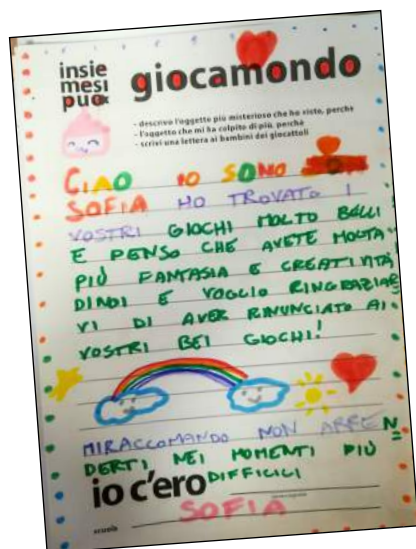 insie
mesi
può
giocamondo
- descrivo l'oggetto più misterioso che ho visto, perchè
- l'oggetto che mi ha colpito di più, perchè
- scrivi una lettera ai bambini dei giocattoli
CIAO IO SONO
SOFIA HO TROVATO I
VOSTRI GIOCHI MOLTO BELLI
E PENSO CHE AVETE MOLTA
PIÙ FANTASIA E CREATIVITÀ
DINOI E VOGLIO RINGRAZIAR
VI DI AVER RINUNCIATO AI
VOSTRI BEI GIOCHI!
MIRACCOMANDO NON ARREN
DERTI NEI MOMENTI PIÙ
DIFFICILI
io c'ero
SOFIA
scuola